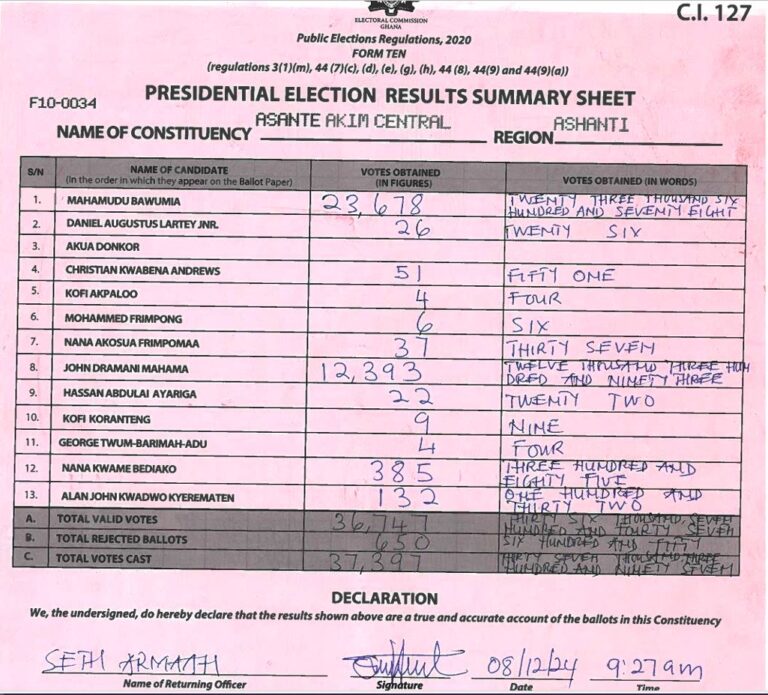 C.I. 127
ELECTORAL COMMISSION
GHANA
Public Elections Regulations, 2020
FORM TEN
(regulations 3(1)(m), 44 (7)(c), (d), (e), (g), (h), 44 (8), 44(9) and 44(9)(a))
F10-0034
PRESIDENTIAL ELECTION RESULTS SUMMARY SHEET
NAME OF CONSTITUENCY ASANTE AKIM CENTRAL REGION ASHANTI
S/N NAME OF CANDIDATE (In the order in which they appear on the Ballot Paper) VOTES OBTAINED (IN FIGURES) VOTES OBTAINED (IN WORDS)
1. MAHAMUDU BAWUMIA 23,678 TWENTY THREE THOUSAND SIX HUNDRED AND SEVENTY EIGHT
2. DANIEL AUGUSTUS LARTEY JNR. 26 TWENTY SIX
3. AKUA DONKOR
4. CHRISTIAN KWABENA ANDREWS 51 FIFTY ONE
5. KOFI AKPALOO 4 FOUR
6. MOHAMMED FRIMPONG 6 SIX
7. NANA AKOSUA FRIMPOMAA 37 THIRTY SEVEN
8. JOHN DRAMANI MAHAMA 12,393 TWELVE THOUSAND THREE HUN DRED AND NINETY THREE
9. HASSAN ABDULAI AYARIGA 22 TWENTY TWO
10. KOFI KORANTENG 9 NINE
11. GEORGE TWUM-BARIMAH-ADU 4 FOUR
12. NANA KWAME BEDIAKO 385 THREE HUNDRED AND EIGHTY FIVE
13. ALAN JOHN KWADWO KYEREMATEN 132 ONE HUNDRED AND THIRTY TWO
A. TOTAL VALID VOTES 36,747 THIRTY SIX THOUSAND SEVEN HUNDRED AND FOURTY SEVEN
B. TOTAL REJECTED BALLOTS 650 SIX HUNDRED AND FIFTY
C. TOTAL VOTES CAST 37,397 THIRTY SEVEN THOUSAND THREE HUNDRED AND NINETY SEVEN
DECLARATION
We, the undersigned, do hereby declare that the results shown above are a true and accurate account of the ballots in this Constituency
SETH ARMAAH 08/12/24 9:27am
Name of Returning Officer Signature Date Time